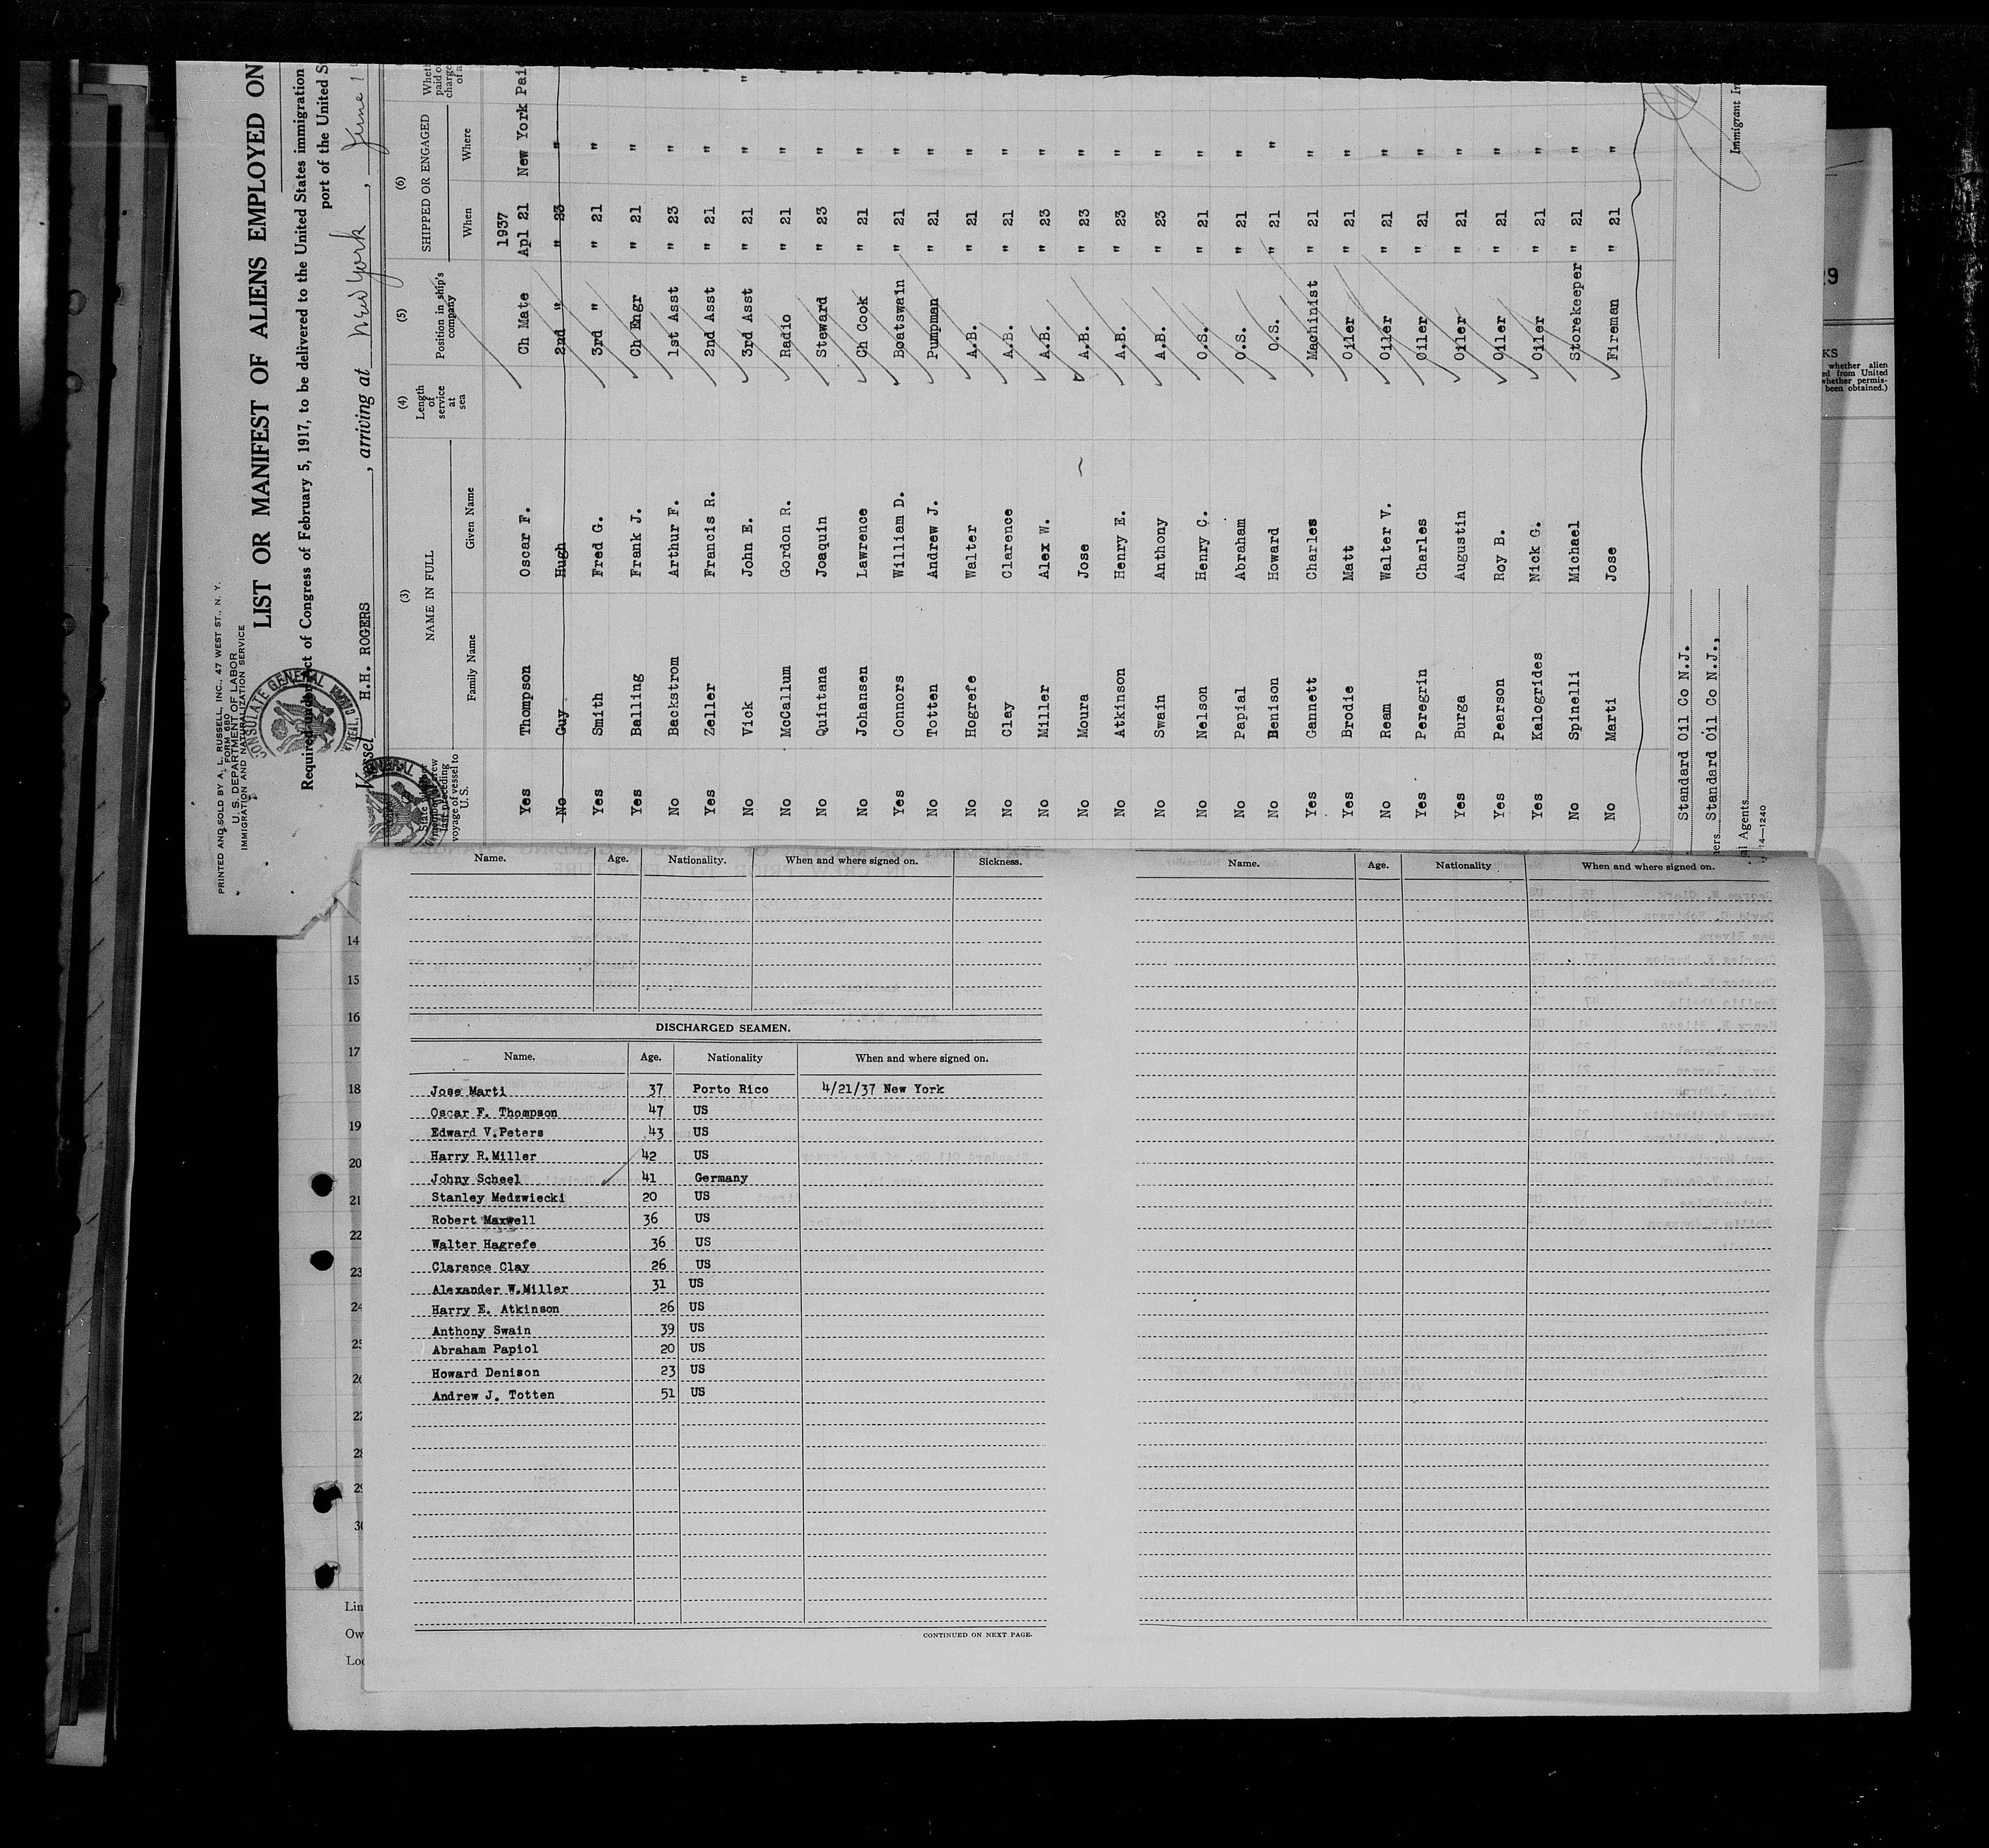 PRINTED AND SOLD BY A. L. RUSSELL, INC., 47 WEST ST., N. Y.
FORM 680
U. S. DEPARTMENT OF LABOR
IMMIGRATION AND NATURALIZATION SERVICE
LIST OR MANIFEST OF ALIENS EMPLOYED ON
CONSULATE GENERAL
Required under Act of Congress of February 5, 1917, to be delivered to the United States immigration
port of the United S
Vessel H.H. ROGERS, arriving at New York, June 1
(3) (4) (5) (6)
NAME IN FULL Length of service at sea Position in ship's company SHIPPED OR ENGAGED
last preceding voyage of vessel to U.S. Family Name Given Name When Where
1937
Yes Thompson Oscar F. Ch Mate Apl 21 New York Pai
No Guy Hugh 2nd " " 23 "
Yes Smith Fred G. 3rd " " 21 " "
Yes Balling Frank J. Ch Engr " 21 " "
No Backstrom Arthur F. 1st Asst " 23 " "
Yes Zeller Francis R. 2nd Asst " 21 " "
No Vick John E. 3rd Asst " 21 " "
No McCallum Gordon R. Radio " 21 " "
No Quintana Joaquin Steward " 23 " "
No Johansen Lawrence Ch Cook " 21 " "
Yes Connors William D. Boatswain " 21 " "
No Totten Andrew J. Pumpman " 21 " "
No Hogrefe Walter A.B. " 21 " "
No Clay Clarence A.B. " 21 " "
No Miller Alex W. A.B. " 23 " "
No Moura Jose A.B. " 23 " "
No Atkinson Henry E. A.B. " 23 " "
No Swain Anthony A.B. " 23 " "
No Nelson Henry C. O.S. " 21 " "
No Papial Abraham O.S. " 21 " "
No Denison Howard O.S. " 21 " "
Yes Gannett Charles Machinist " 21 " "
Yes Brodie Matt Oiler " 21 " "
No Ream Walter V. Oiler " 21 " "
Yes Peregrin Charles Oiler " 21 " "
Yes Burga Augustin Oiler " 21 " "
Yes Pearson Roy B. Oiler " 21 " "
Yes Kalogrides Nick G. Oiler " 21 " "
No Spinelli Michael Storekeeper " 21 " "
No Marti Jose Fireman " 21 " "
Standard Oil Co N.J.
ners Standard Oil Co N.J.,
Immigrant In
al Agents
14—1240
29
KS
whether alien
ed from United
whether permis-
been obtained.)
Name. Age. Nationality. When and where signed on. Sickness.
Name. Age. Nationality When and where signed on.
14
15
16
17
18
19
20
21
22
23
24
25
26
27
28
29
30
Lin
Ow
Loc
DISCHARGED SEAMEN.
Name. Age. Nationality When and where signed on.
Jose Marti 37 Porto Rico 4/21/37 New York
Oscar F. Thompson 47 US
Edward V.Peters 43 US
Harry R.Miller 42 US
Johny Scheel 41 Germany
Stanley Medzwiecki 20 US
Robert Maxwell 36 US
Walter Hagrefe 36 US
Clarence Clay 26 US
Alexander W.Miller 31 US
Harry E. Atkinson 26 US
Anthony Swain 39 US
Abraham Papiol 20 US
Howard Denison 23 US
Andrew J. Totten 51 US
CONTINUED ON NEXT PAGE.